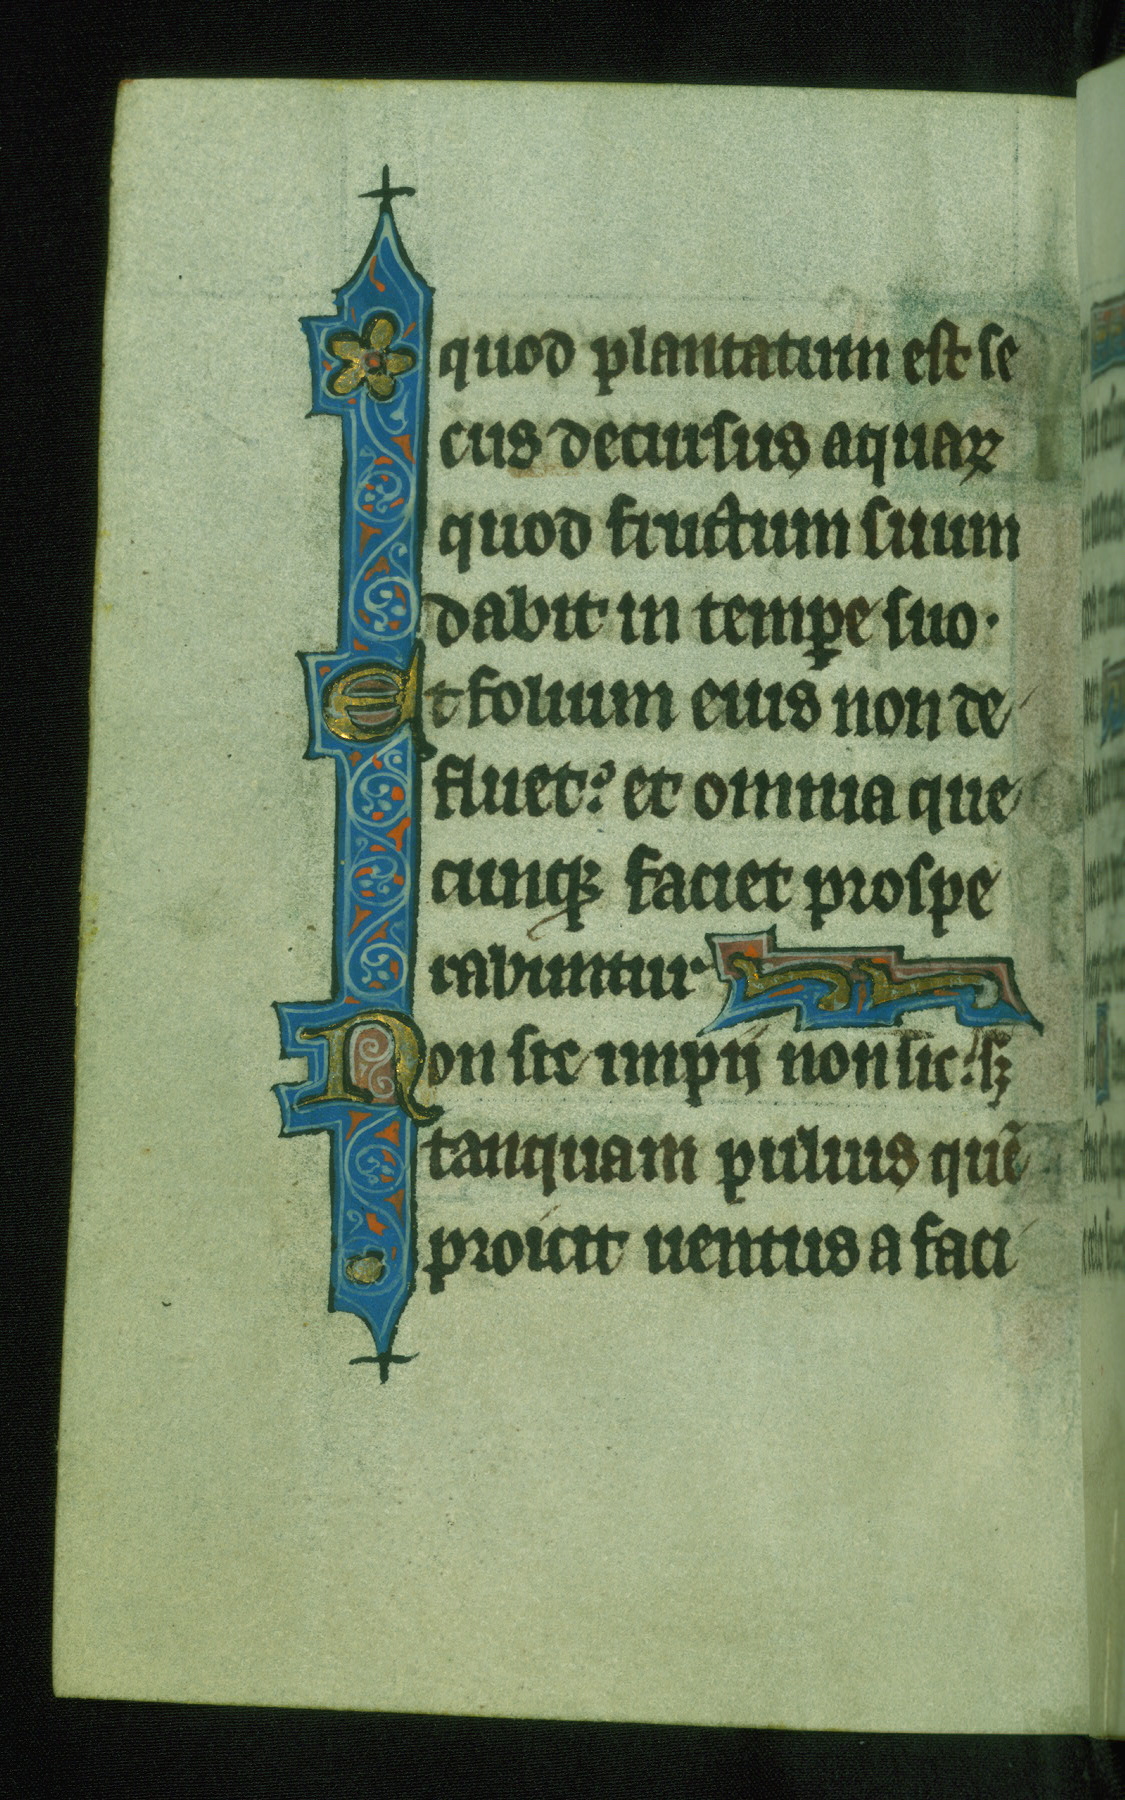 quod plantatum est se
cus decursus aquaꝝ
quod fructum suum
dabit in temꝑe suo·
Et folium eius non de
fluet: et omnia que
cunqꝫ faciet prospe
rabuntur
Non sic impij non sic: sꝫ
tanquam puluis quē
proicit uentus a faci